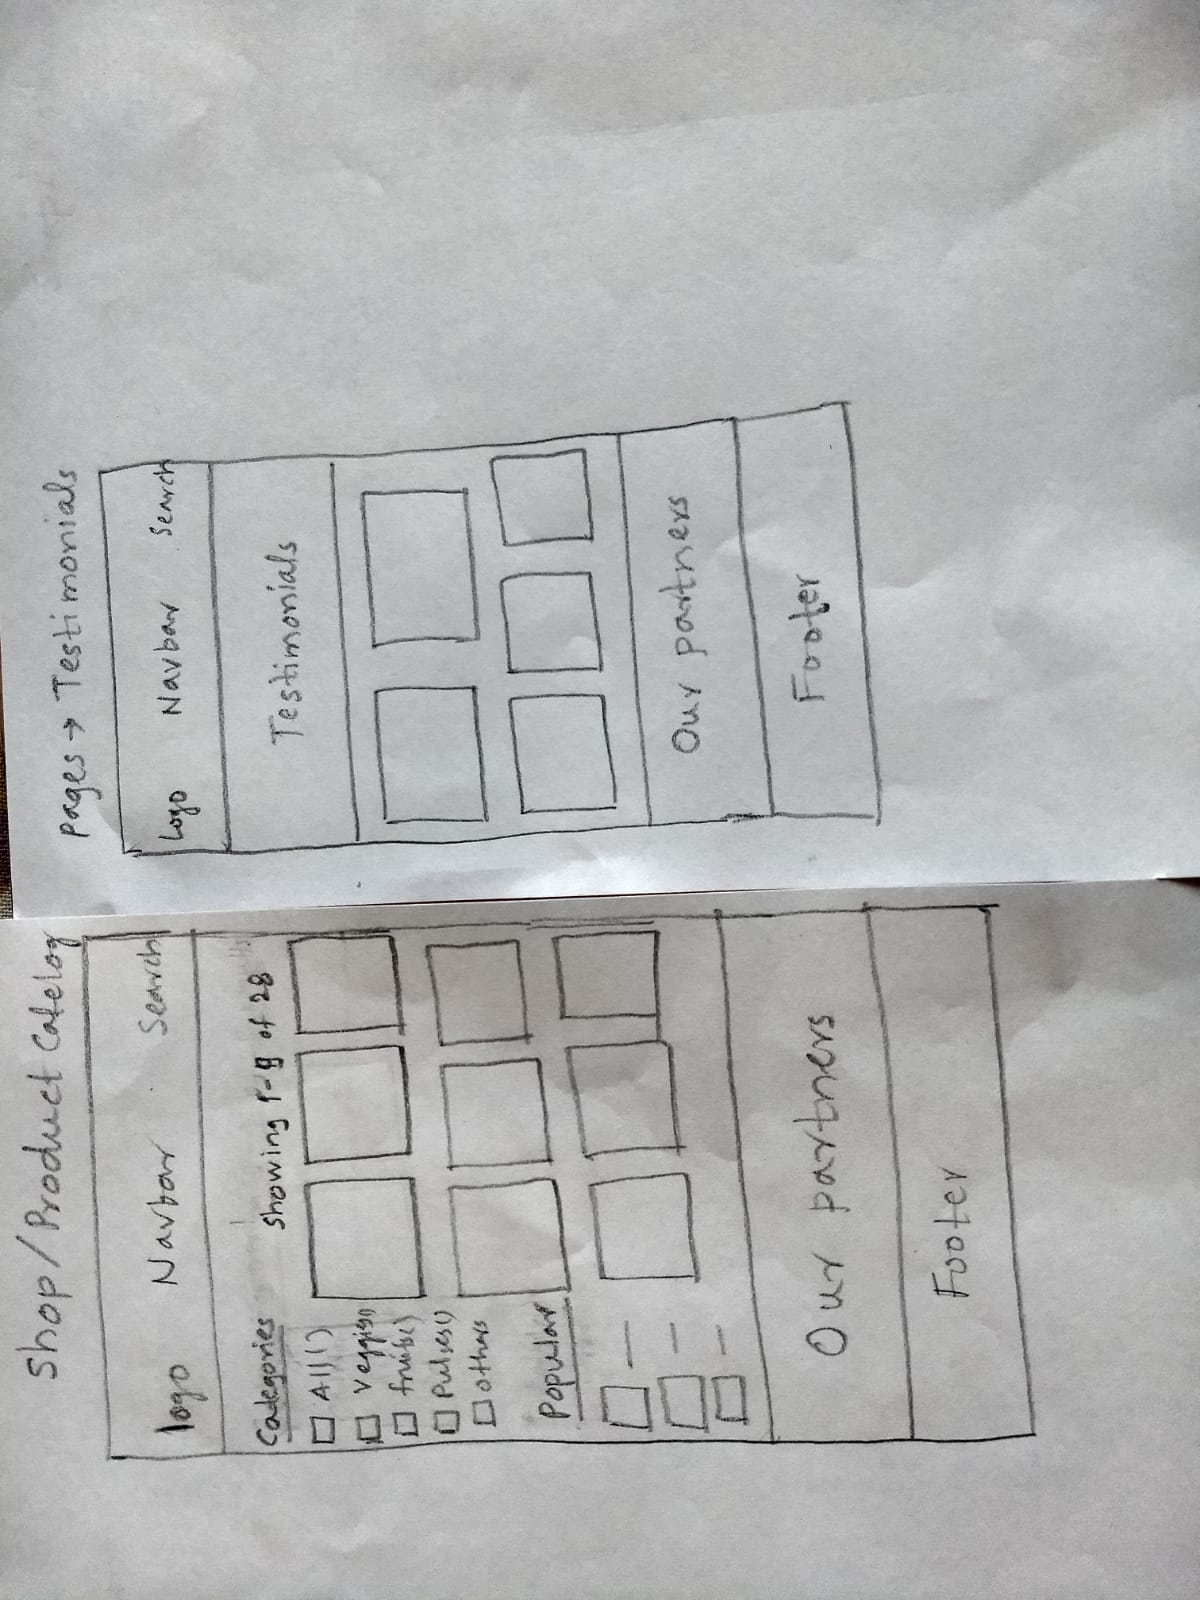 Shop/Product Catelog
logo Navbar Search
Categories
showing 1-9 of 28
All()
Veggies()
fruits()
Pulses()
others
Popular
Our partners
Footer
pages → Testimonials
Logo Navbar Search
Testimonials
Our partners
Footer